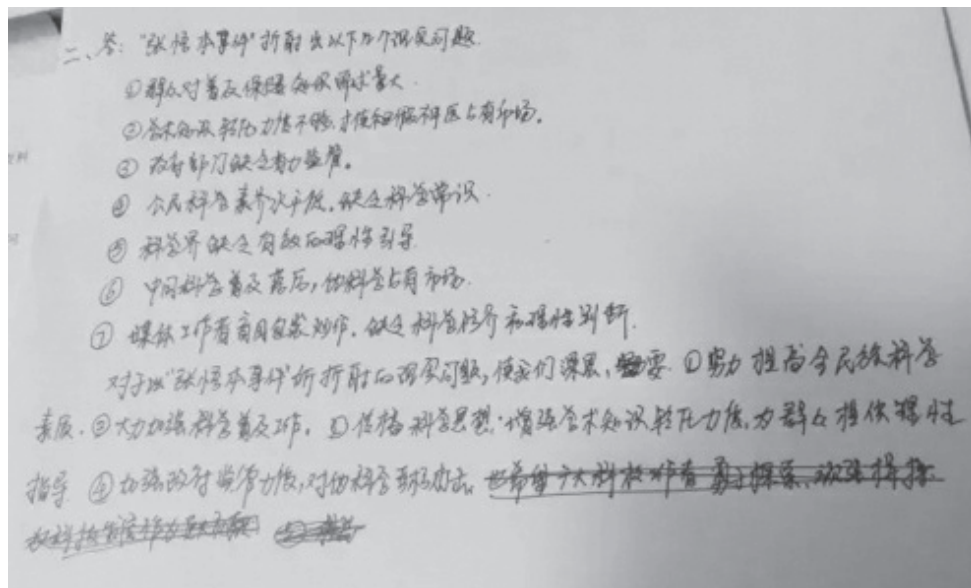 二、答:“张悟本事件”折射出以下几个现实问题.
①群众对普及保健知识需求量大.
②学术知识转化力度不够,才使细伪科医占有市场。
③政府部门缺乏有力监管。
④ 公民科学素养水平低,缺乏科学常识.
⑤ 科学界缺乏有效的理性引导
⑥ 中国科学普及落后,伪科学占有市场.
⑦ 媒体工作者盲目自发炒作,缺乏科学修养和理性判断.
对于以“张悟本事件”所折射的现实问题,使我们深思,要 ①努力提高全民族科学
素质.②大力加强科学普及工作. ③ 传播科学思想,增强学术知识转化力度,为群众提供理性
指导 ④加强政府监管力度,对伪科学要打击. 希望广大科技工作者勇于探索、